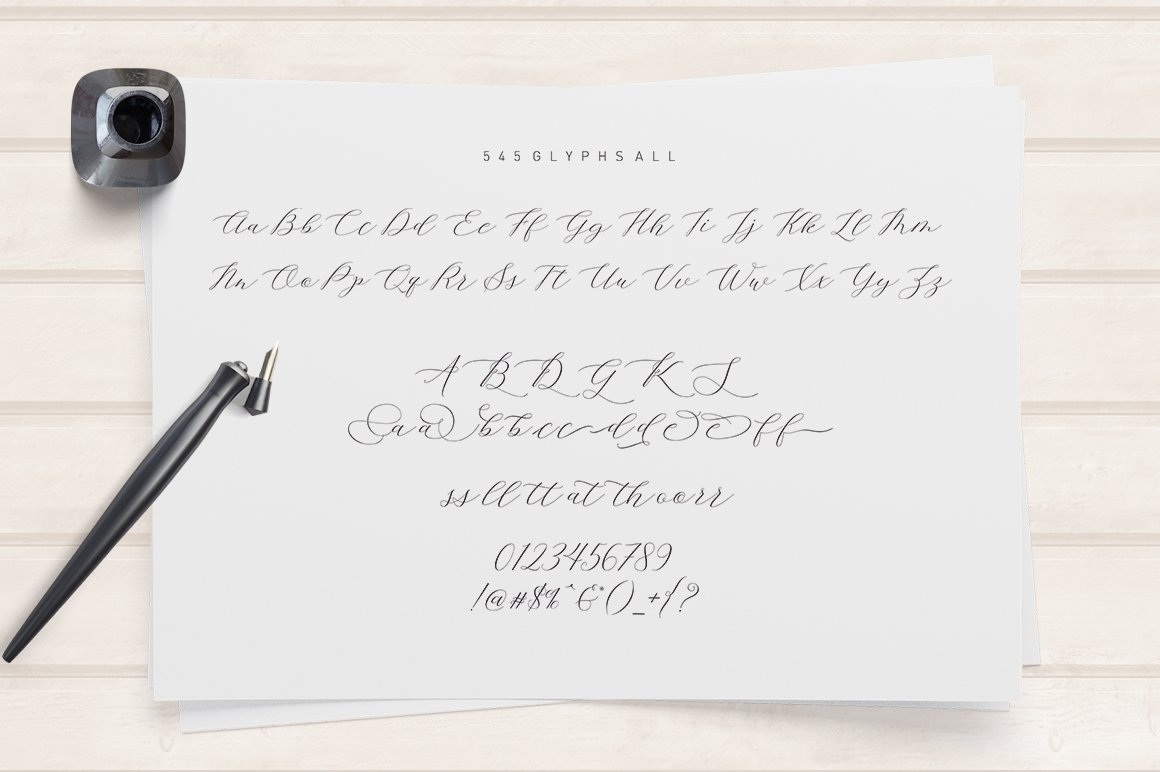 545 GLYPHS ALL
Aa Bb Cc Dd Ee Ff Gg Hh Ii Jj Kk Ll Mm
Nn Oo Pp Qq Rr Ss Tt Uu Vv Ww Xx Yy Zz
A B D G K L
a a a b b c c d d e e f f
ss ll tt at th oo rr
0123456789
!@#$%^&*()_+{?